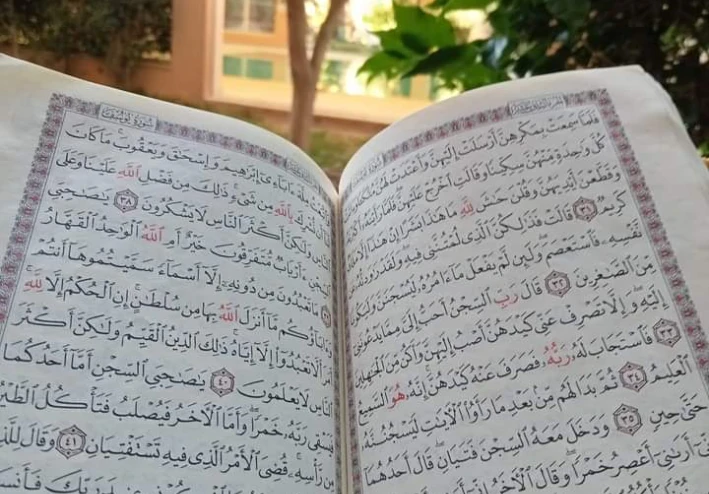 فَلَمَّا سَمِعَتْ بِمَكْرِهِنَّ أَرْسَلَتْ إِلَيْهِنَّ وَأَعْتَدَتْ لَهُنَّ
كُلَّ وَٰحِدَةٍ مِّنْهُنَّ سِكِّينًا وَقَالَتِ ٱخْرُجْ عَلَيْهِنَّ فَلَمَّا رَأَيْنَهُۥٓ
وَقَطَّعْنَ أَيْدِيَهُنَّ وَقُلْنَ حَٰشَ لِلَّهِ مَا هَٰذَا بَشَرًا إِنْ هَٰذَآ إِلَّا
كَرِيمٌ ٣١ قَالَتْ فَذَٰلِكُنَّ ٱلَّذِى لُمْتُنَّنِى فِيهِ وَلَقَدْ رَٰوَدتُّهُۥ
نَّفْسِهِۦ فَٱسْتَعْصَمَ وَلَئِن لَّمْ يَفْعَلْ مَآ ءَامُرُهُۥ لَيُسْجَنَنَّ وَلَيَكُونًا
مِّنَ ٱلصَّٰغِرِينَ ٣٢ قَالَ رَبِّ ٱلسِّجْنُ أَحَبُّ إِلَىَّ مِمَّا يَدْعُونَنِىٓ
إِلَيْهِ وَإِلَّا تَصْرِفْ عَنِّى كَيْدَهُنَّ أَصْبُ إِلَيْهِنَّ وَأَكُن مِّنَ ٱلْجَٰهِلِينَ
٣٣ فَٱسْتَجَابَ لَهُۥ رَبُّهُۥ فَصَرَفَ عَنْهُ كَيْدَهُنَّ إِنَّهُۥ هُوَ ٱلسَّمِيعُ
ٱلْعَلِيمُ ٣٤ ثُمَّ بَدَا لَهُم مِّنۢ بَعْدِ مَا رَأَوُا۟ ٱلْءَايَٰتِ لَيَسْجُنُنَّهُۥ
حَتَّىٰ حِينٍ ٣٥ وَدَخَلَ مَعَهُ ٱلسِّجْنَ فَتَيَانِ قَالَ أَحَدُهُمَآ
إِنِّىٓ أَرَىٰنِىٓ أَعْصِرُ خَمْرًا وَقَالَ ٱلْءَاخَرُ إِنِّىٓ
سُورَةُ يُوسُفَ
مِلَّةَ ءَابَآءِىٓ إِبْرَٰهِيمَ وَإِسْحَٰقَ وَيَعْقُوبَ مَا كَانَ
لَنَآ أَن نُّشْرِكَ بِٱللَّهِ مِن شَىْءٍ ذَٰلِكَ مِن فَضْلِ ٱللَّهِ عَلَيْنَا وَعَلَى
ٱلنَّاسِ وَلَٰكِنَّ أَكْثَرَ ٱلنَّاسِ لَا يَشْكُرُونَ ٣٨ يَٰصَىٰحِبَىِ
ٱلسِّجْنِ ءَأَرْبَابٌ مُّتَفَرِّقُونَ خَيْرٌ أَمِ ٱللَّهُ ٱلْوَٰحِدُ ٱلْقَهَّارُ
٣٩ مَا تَعْبُدُونَ مِن دُونِهِۦٓ إِلَّآ أَسْمَآءً سَمَّيْتُمُوهَآ أَنتُمْ
وَءَابَآؤُكُم مَّآ أَنزَلَ ٱللَّهُ بِهَا مِن سُلْطَٰنٍ إِنِ ٱلْحُكْمُ إِلَّا لِلَّهِ
أَمَرَ أَلَّا تَعْبُدُوٓا۟ إِلَّآ إِيَّاهُ ذَٰلِكَ ٱلدِّينُ ٱلْقَيِّمُ وَلَٰكِنَّ أَكْثَرَ
ٱلنَّاسِ لَا يَعْلَمُونَ ٤٠ يَٰصَىٰحِبَىِ ٱلسِّجْنِ أَمَّآ أَحَدُكُمَا
فَيَسْقِى رَبَّهُۥ خَمْرًا وَأَمَّا ٱلْءَاخَرُ فَيُصْلَبُ فَتَأْكُلُ ٱلطَّيْرُ
مِن رَّأْسِهِۦ قُضِىَ ٱلْأَمْرُ ٱلَّذِى فِيهِ تَسْتَفْتِيَانِ ٤١ وَقَالَ لِلَّذِى